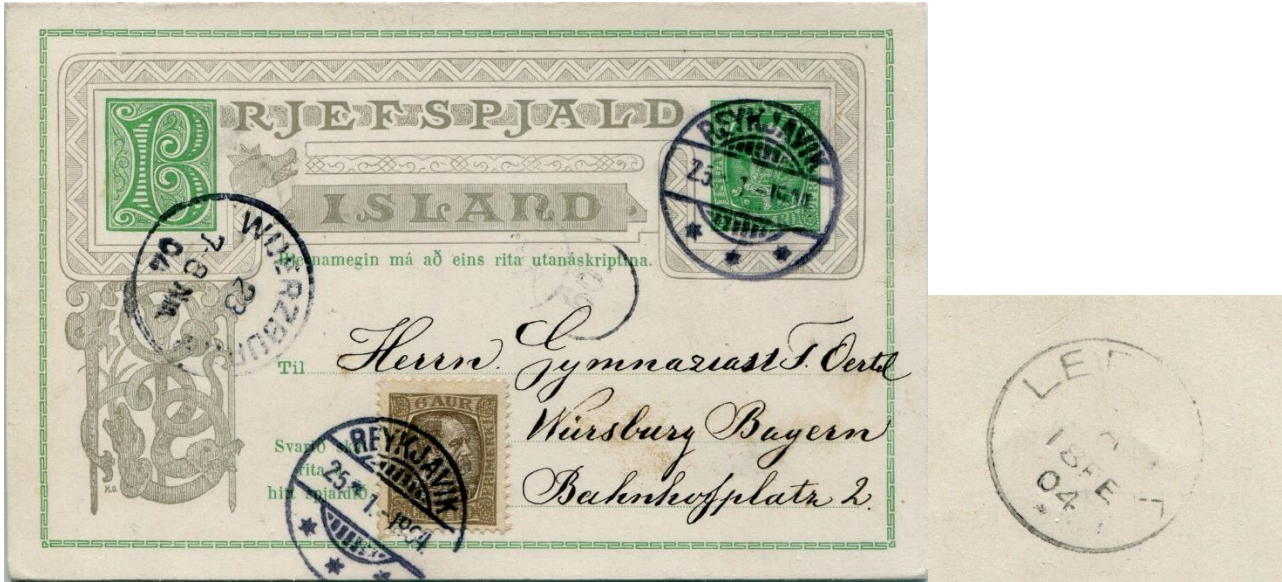 BRJEFSPJALD
ISLAND
REYKJAVIK
25. 1.-1904.
WUERZBURG
23
7-8 NM
04
namegin má að eins rita utanáskriptina.
Til Herrn. Gymnasiast F. Oertel
Würsburg Bayern
Bahnhofplatz 2.
Svarið
rita
hitt spjaldið
6 AUR
REYKJAVIK
25. 1.-1904.
LE
A
18 FE
04